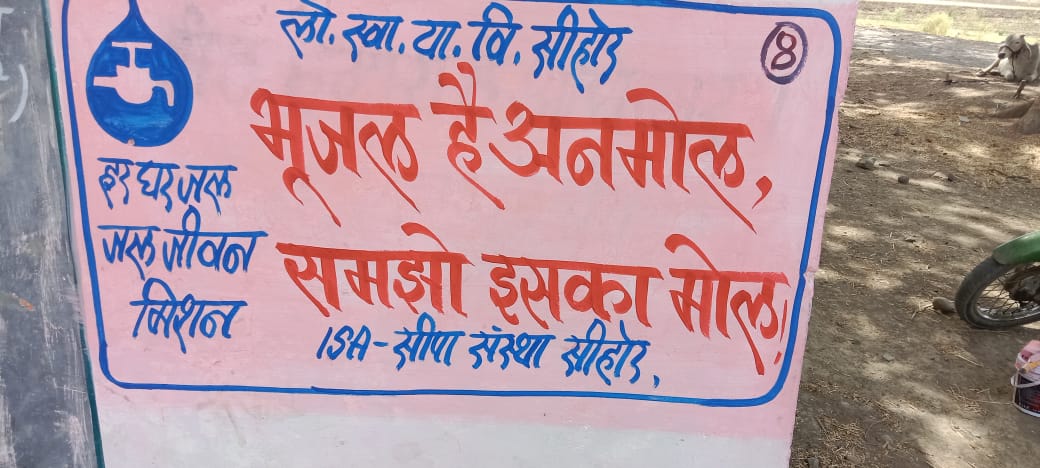 लो. स्वा. या. वि. सीहोर
8
भूजल है अनमोल,
समझो इसका मोल!
हर घर जल
जल जीवन
मिशन
ISA - सीपा संस्था सीहोर.